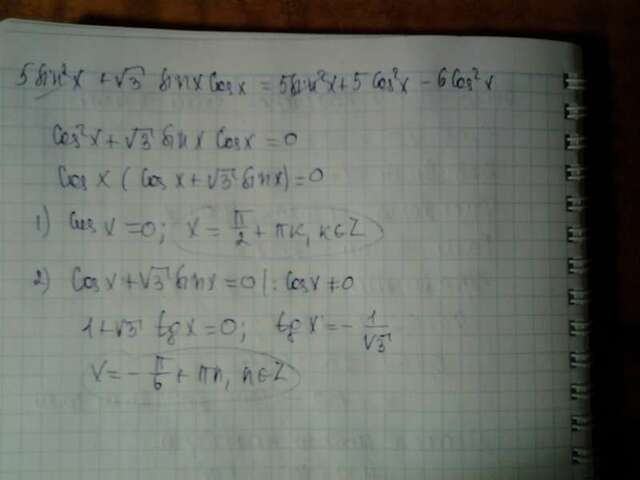 5 sin²x + √3 sin x cos x = 5 sin²x + 5 cos²x − 6 cos²x
cos²x + √3 sin x cos x = 0
cos x (cos x + √3 sin x) = 0
1) cos x = 0; x = π/2 + πk, k∈Z
2) cos x + √3 sin x = 0 |: cos x ≠ 0
1 + √3 tg x = 0; tg x = − 1/√3
x = − π/6 + πn, n∈Z